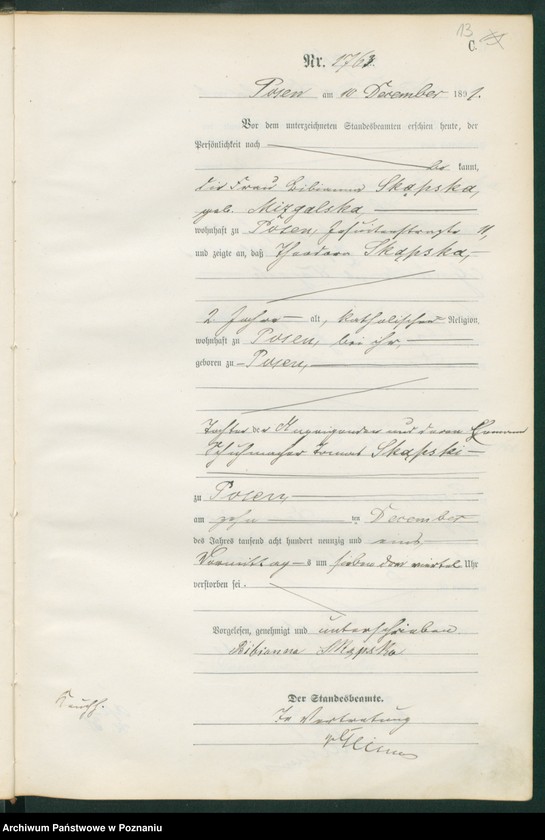 13
C.
Nr. 1762.
Posen am 10 December 1891.
Vor dem unterzeichneten Standesbeamten erschien heute, der
Persönlichkeit nach
be kannt,
die Frau Bibianna Skąpska,
geb. Mizgalska,
wohnhaft zu Posen, Jesuitenstraße 11,
und zeigte an, daß Theodora Skąpska,
2 Jahre alt, katholischer Religion,
wohnhaft zu Posen, bei ihr,
geboren zu Posen,
Tochter der Anzeigenden und deren Ehemann
Schuhmacher Ignatz Skąpski
zu Posen,
am zehn ten December
des Jahres tausend acht hundert neunzig und eins
Vormittag s um sieben drei viertel Uhr
verstorben sei.
Vorgelesen, genehmigt und unterschrieben
Bibianna Skąpska
Der Standesbeamte.
In Vertretung
Archiwum Państwowe w Poznaniu